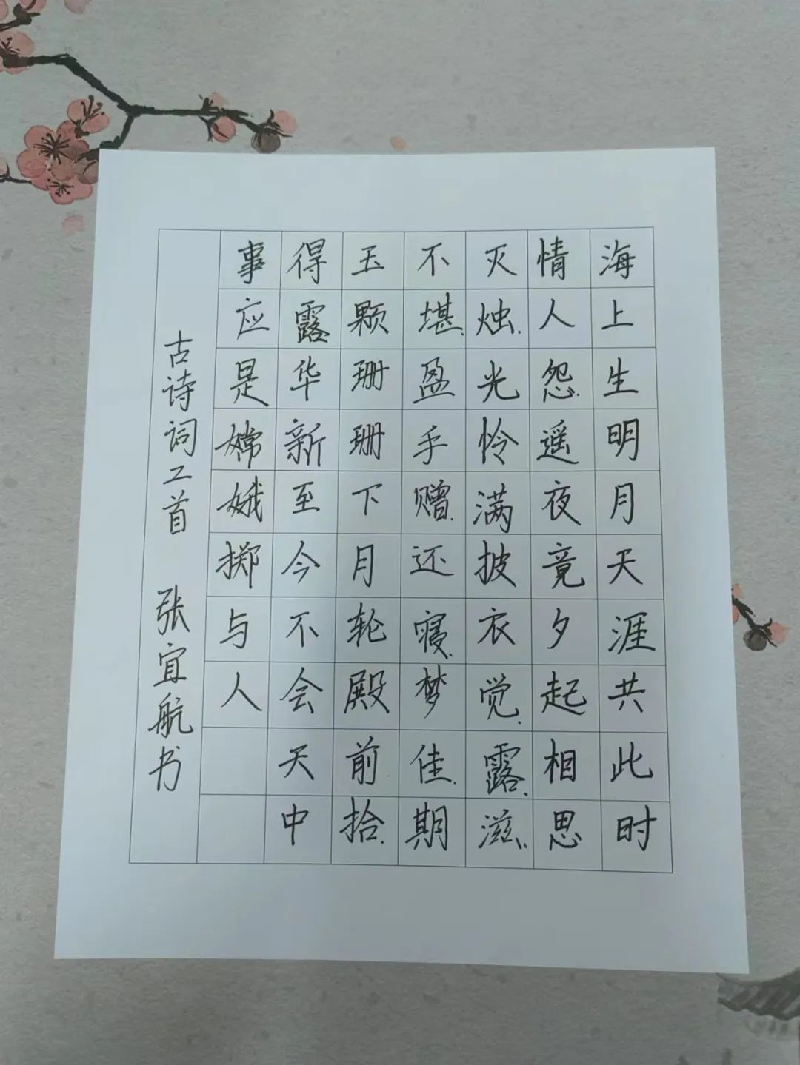 海上生明月天涯共此时
情人怨遥夜竟夕起相思
灭烛光怜满披衣觉露滋
不堪盈手赠还寝梦佳期
玉颗珊珊下月轮殿前拾
得露华新至今不会天中
事应是嫦娥掷与人
古诗词二首 张宜航书